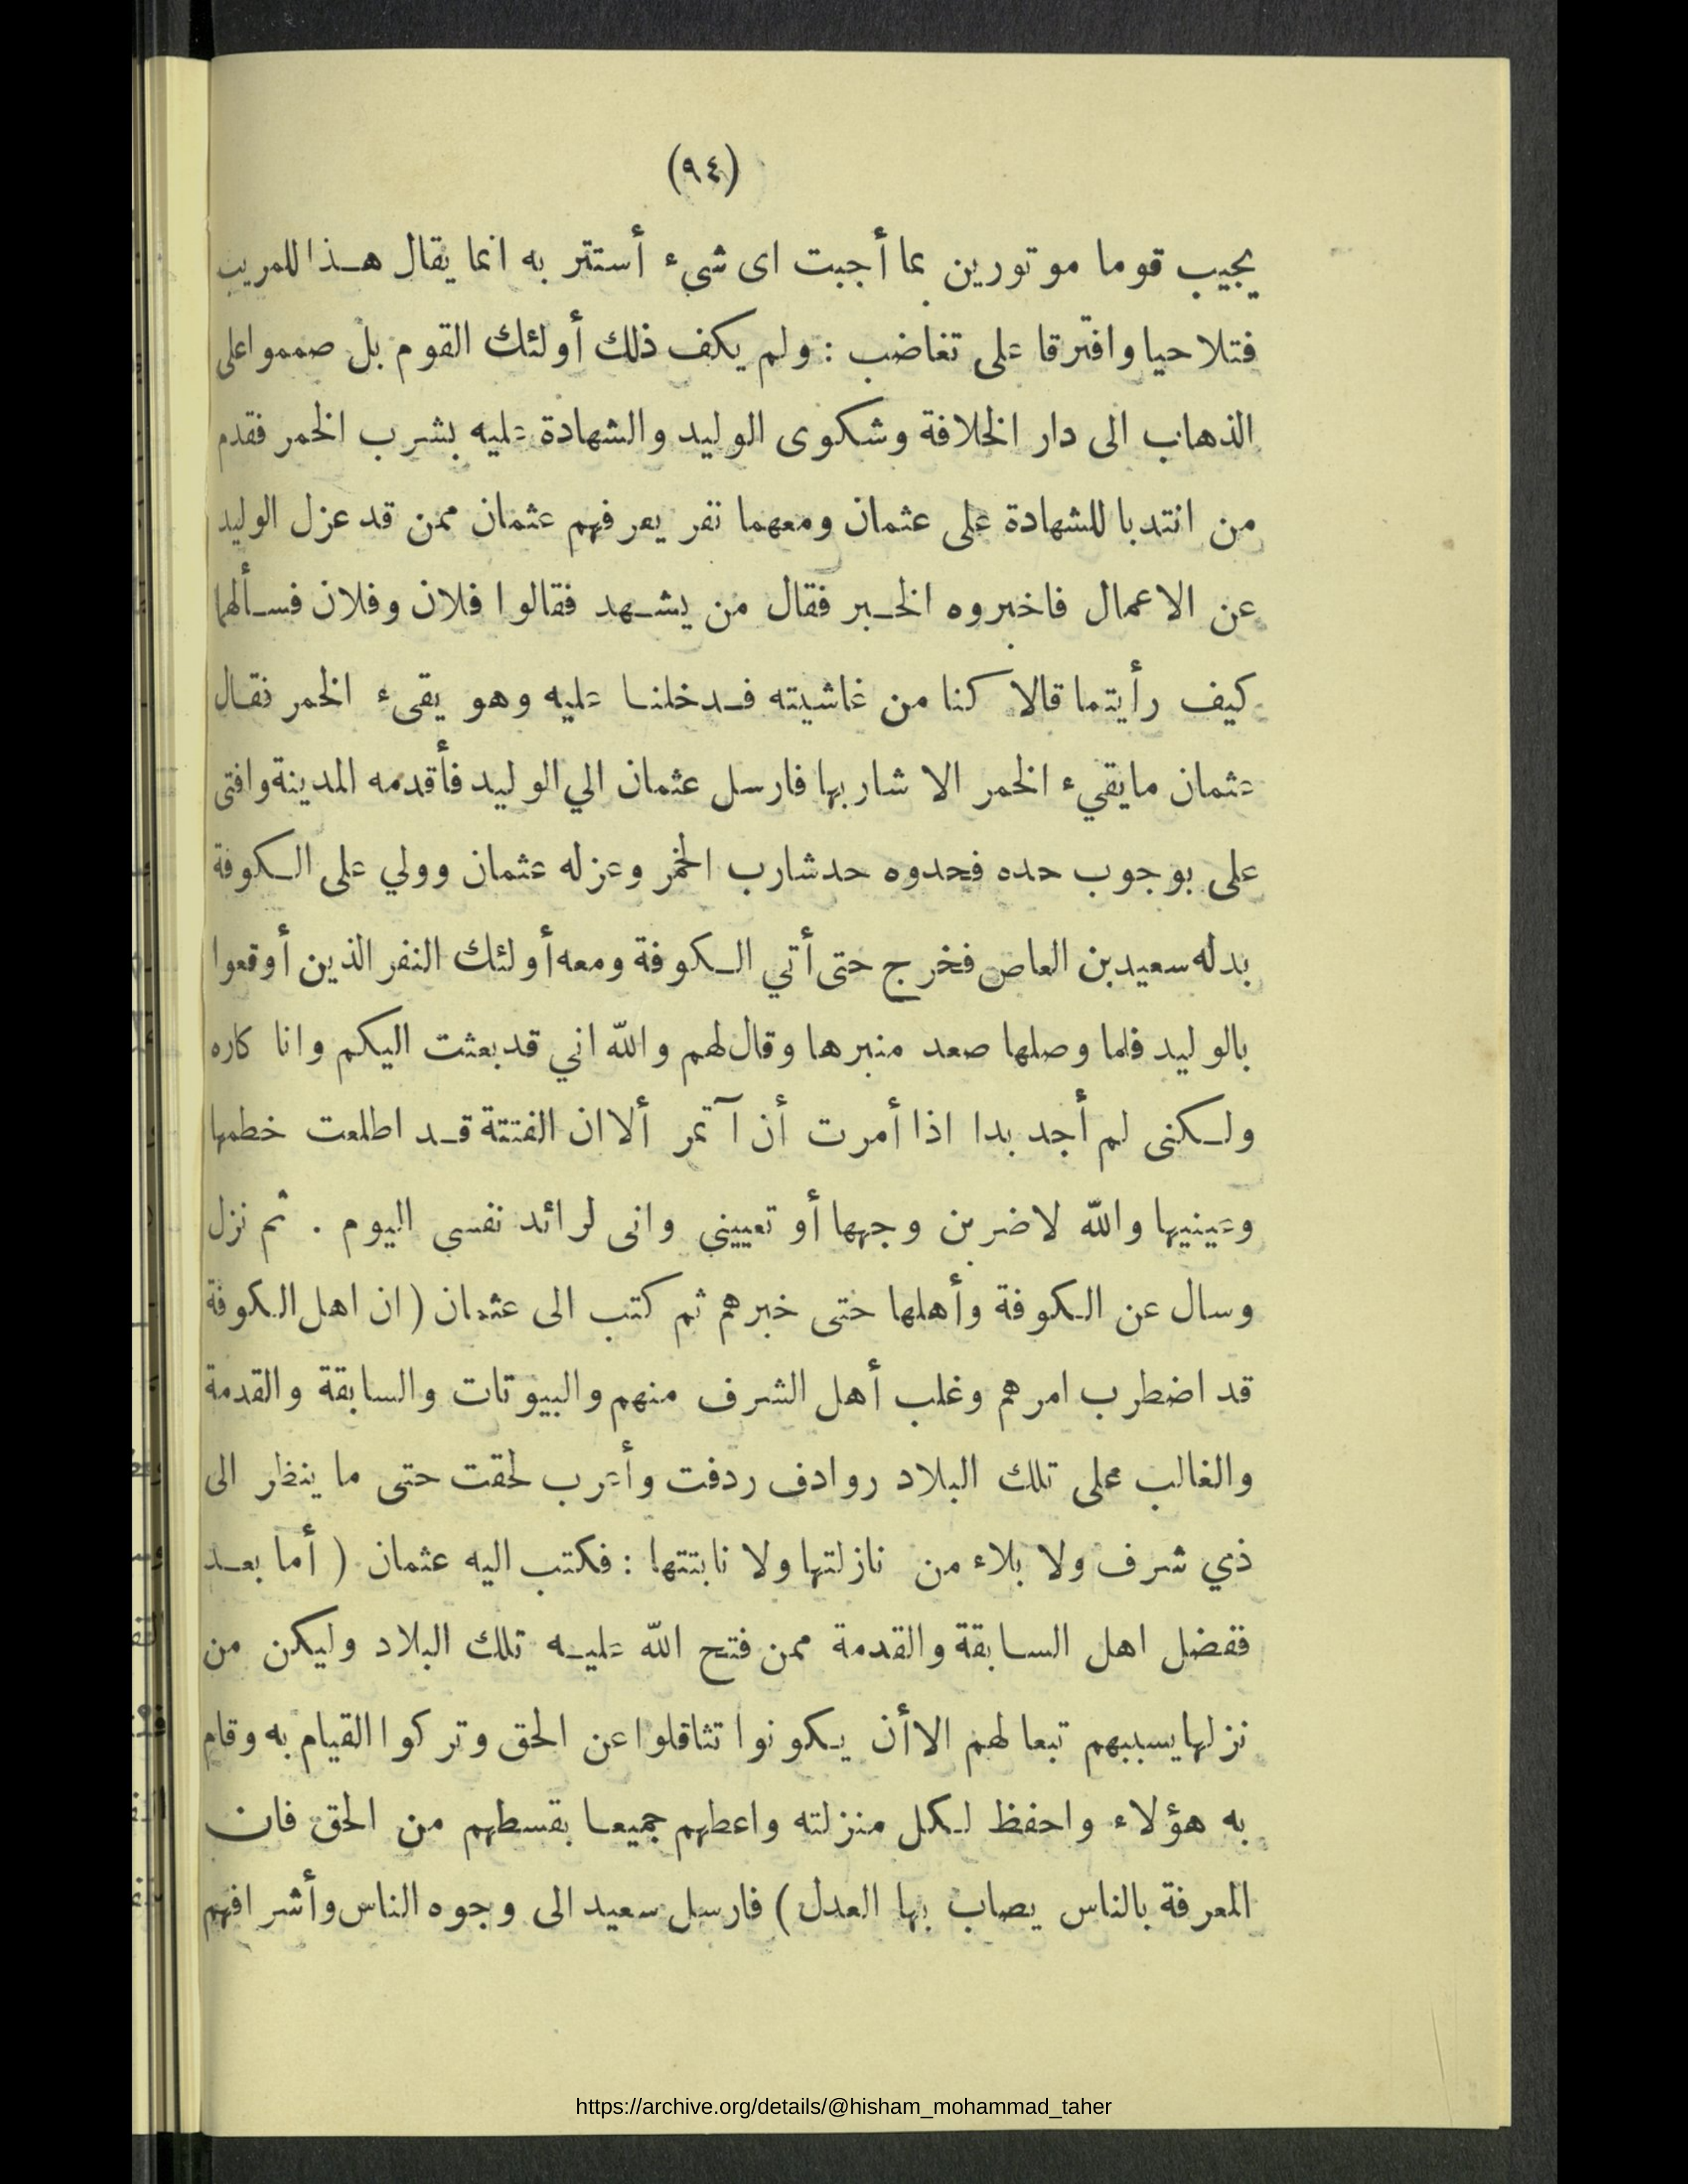 (٩٤)
يجيب قوما موتورين بما أجبت اى شىء أستتر به انما يقال هذا للمريب
فتلاحيا وافترقا على تغاضب : ولم يكف ذلك أولئك القوم بل صمموا على
الذهاب الى دار الخلافة وشكوى الوليد والشهادة عليه بشرب الخمر فقدم
من انتدبا للشهادة على عثمان ومعهما نفر يعرفهم عثمان ممن قد عزل الوليد
عن الاعمال فاخبروه الخبر فقال من يشهد فقالوا فلان وفلان فسألهما
كيف رأيتما قالا كنا من غاشيته فدخلنا عليه وهو يقىء الخمر فقال
عثمان مايقيء الخمر الا شاربها فارسل عثمان الي الوليد فأقدمه المدينة وافتى
على بوجوب حده فحدوه حد شارب الخمر وعزله عثمان وولي على الكوفة
بدله سعيد بن العاص فخرج حتى أتي الكوفة ومعه أولئك النفر الذين أوقعوا
بالوليد فلما وصلها صعد منبرها وقال لهم والله اني قد بعثت اليكم وانا كاره
ولكنى لم أجد بدا اذا أمرت أن آتمر ألا ان الفتنة قد اطلعت خطمها
وعينيها والله لاضربن وجهها أو تعييني وانى لرائد نفسى اليوم . ثم نزل
وسال عن الكوفة وأهلها حتى خبرهم ثم كتب الى عثمان ( ان اهل الكوفة
قد اضطرب امرهم وغلب أهل الشرف منهم والبيوتات والسابقة والقدمة
والغالب على تلك البلاد روادف ردفت وأعرب لحقت حتى ما ينظر الى
ذي شرف ولا بلاء من نازلتها ولا نابتتها : فكتب اليه عثمان ( أما بعد
ففضل اهل السابقة والقدمة ممن فتح الله عليه تلك البلاد وليكن من
نزلها يسببهم تبعا لهم الا أن يكونوا تثاقلوا عن الحق وتركوا القيام به وقام
به هؤلاء واحفظ لكل منزلته واعطهم جميعا بقسطهم من الحق فان
المعرفة بالناس يصاب بها العدل ) فارسل سعيد الى وجوه الناس وأشرافهم
https://archive.org/details/@hisham_mohammad_taher